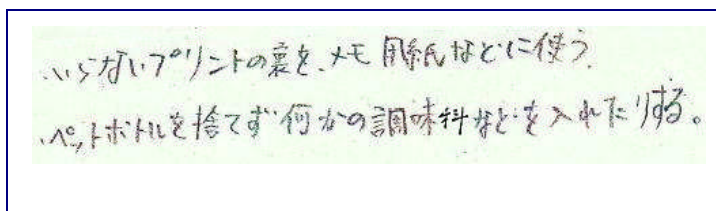 ・いらないプリントの裏を、メモ用紙などに使う。
・ペットボトルを捨てず何かの調味料などを入れたりする。